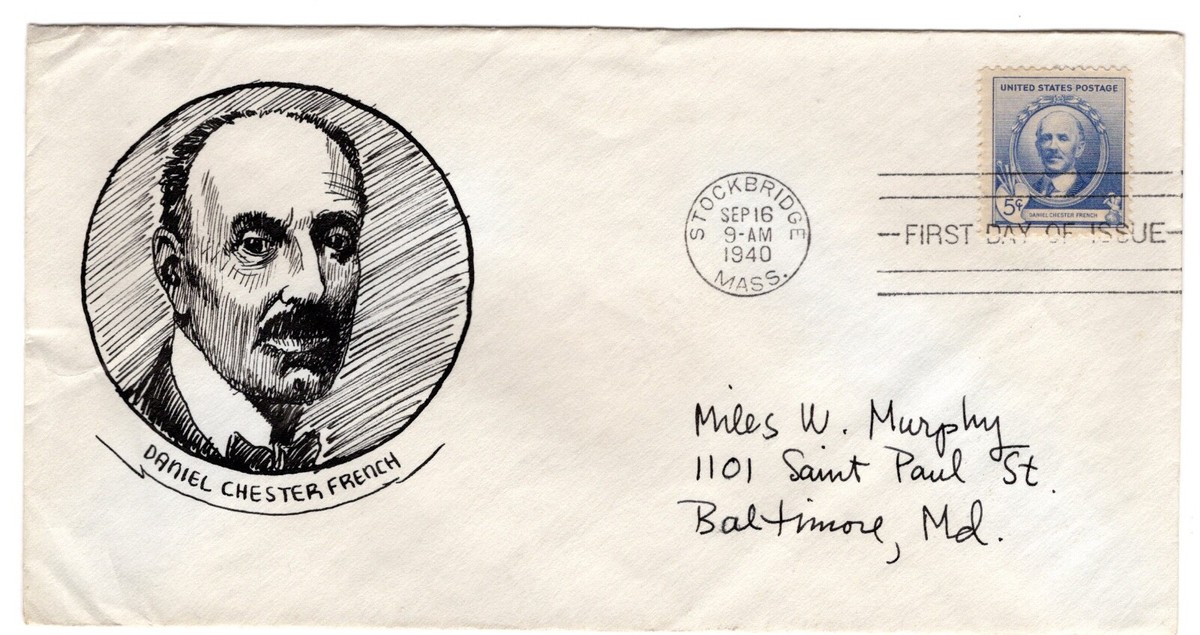 UNITED STATES POSTAGE
5¢
DANIEL CHESTER FRENCH
STOCKBRIDGE
SEP 16
9-AM
1940
MASS.
FIRST DAY OF ISSUE
DANIEL CHESTER FRENCH
Miles W. Murphy
1101 Saint Paul St.
Baltimore, Md.